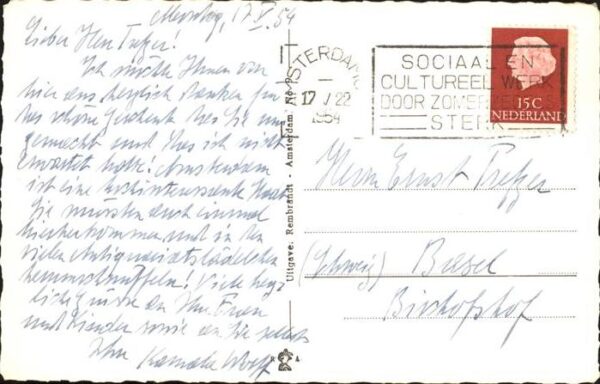 Montag, 17. V. 54
Lieber Herr Trefzer!
Ich möchte Ihnen von
hier aus herzlich danken für
das schöne Geschenk das Sie mir
gemacht und das ich nicht
erwartet hatte! Amsterdam
ist eine hochinteressante Stadt
Sie müssten auch einmal
hierherkommen und in den
vielen Antiquariatslädelchen
herumschnüffeln! Viele herz-
lich Ihre Frau
und Kinder sowie an Sie selbst
Ihre
Uitgave: Rembrandt - Amsterdam. No
AMSTERDAM
17 V 22
1954
SOCIAAL EN
CULTUREEL WERK
DOOR ZOMERZEGELS
STERK
15 C
NEDERLAND
Herrn Ernst Trefzer
(Schweiz) Basel
Bischofshof